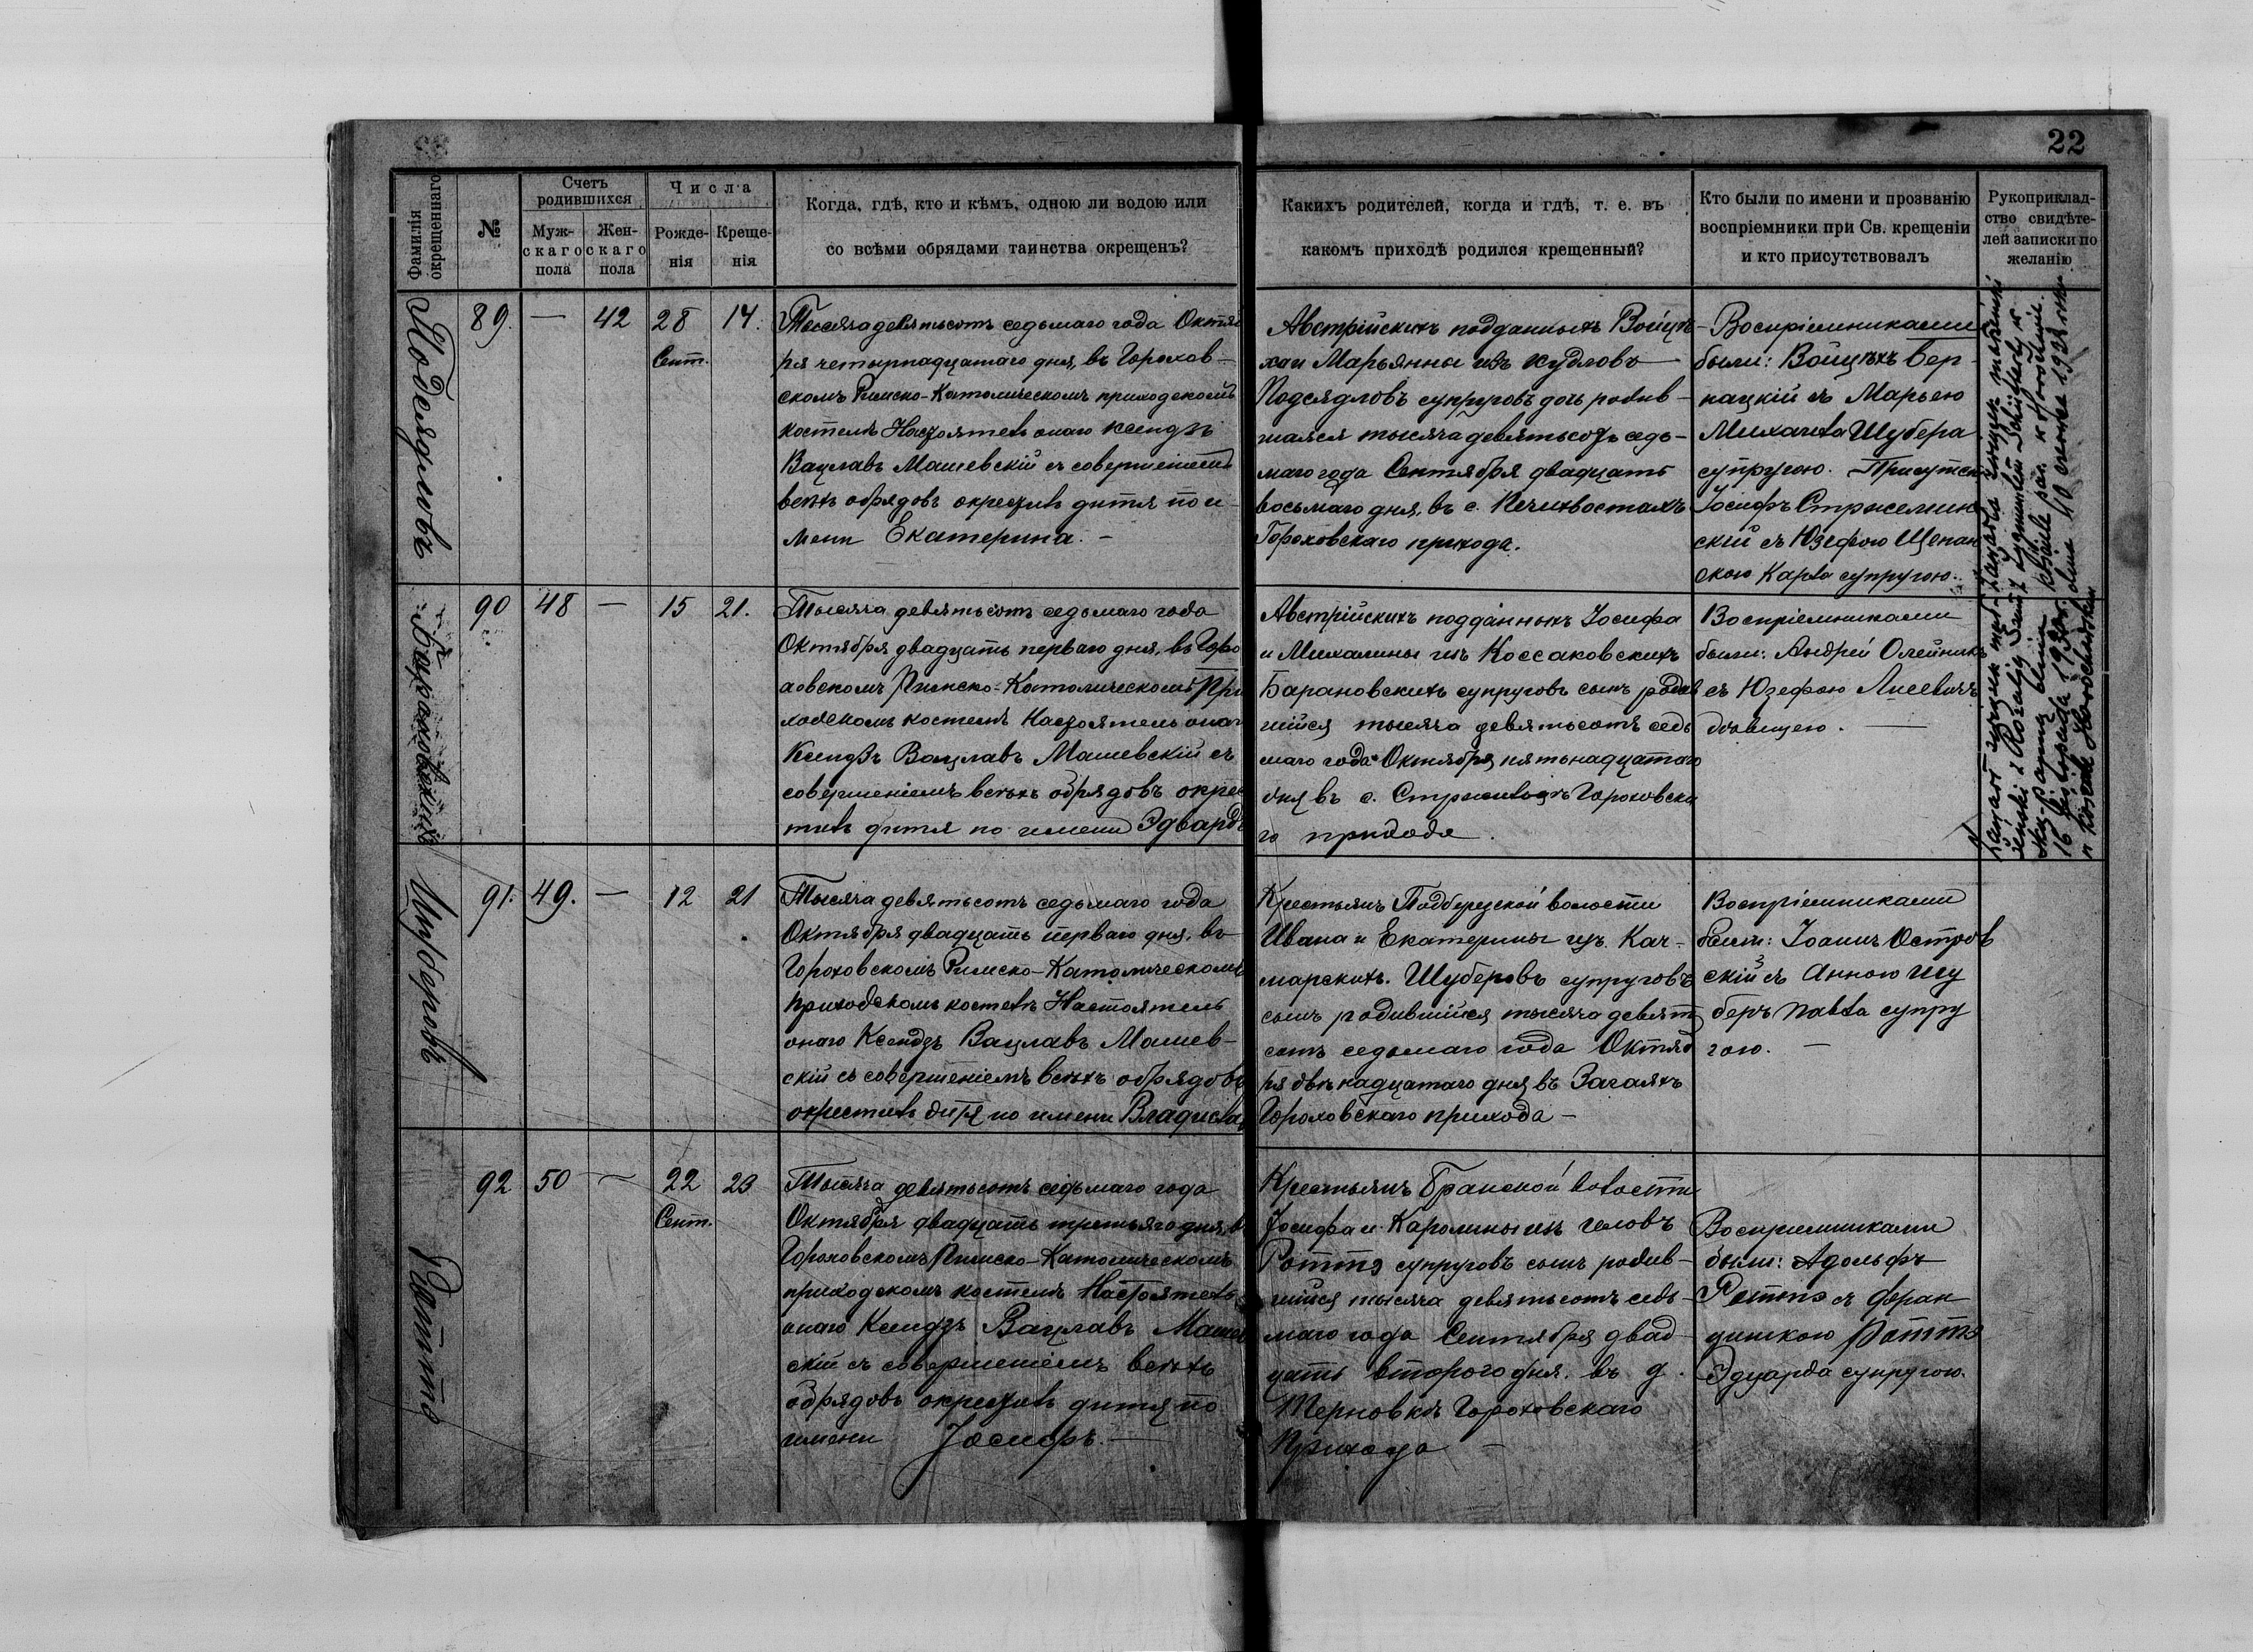 22
Фамилія окрещеннаго
№
Счетъ родившихся
Муж-
скаго
пола
Жен-
скаго
пола
Числа
Рожде-
нія
Креще-
нія
Когда, гдѣ, кто и кѣмъ, одною ли водою или
со всѣми обрядами таинства окрещенъ?
Какихъ родителей, когда и гдѣ, т. е. въ
какомъ приходѣ родился крещенный?
Кто были по имени и прозванію
воспріемники при Св. крещеніи
и кто присутствовалъ
Рукоприклад-
ство свидѣте-
лей записки по
желанію
Подсядловъ
89.
—
42
28
Сент.
14.
Тысяча девятьсотъ седьмаго года Октяб
ря четырнадцатаго дня, въ Горохов-
скомъ Римско-Католическомъ приходскомъ
костелѣ Настоятель онаго Ксендзъ
Вацлавъ Машевскій съ совершеніемъ
всѣхъ обрядовъ окрестилъ дитя по и-
мени Екатерина. –
Австрійскихъ подданныхъ Войцѣ-
ха и Марьянны изъ Кудловъ
Подсядловъ супруговъ дочь родив-
шаяся тысяча девятьсотъ седь-
маго года Сентября двадцать
восьмаго дня, въ с. Печихвостахъ
Гороховскаго прихода.
Воспріемниками
были: Войцѣхъ Бер-
нацкій съ Марьею
Михаила Шубера
супругою. Присутств
Іосифъ
скій съ Юзефою Щепан
скою Карла супругою.
Барановскихъ
90
48
—
15
21.
Тысяча девятьсотъ седьмаго года
Октября двадцать перваго дня, въ Горо
ховскомъ Римско-Католическомъ При
ходскомъ костелѣ Настоятель онаго
Ксендзъ Вацлавъ Машевскій съ
совершеніемъ всѣхъ обрядовъ окрес
тилъ дитя по имени Эдвардъ
Австрійскихъ подданныхъ Іосифа
и Михалины изъ Коссаковскихъ
Барановскихъ супруговъ сынъ родив
шійся тысяча девятьсотъ седь
маго года Октября пятьнадцатаго
дня въ с. Гороховска
го прихода.
Воспріемниками
были: Андрей Олейникъ
съ Юзефою Лисевичъ
дѣвицею. —
Шуберовъ
91.
49.
—
12
21
Тысяча девятьсотъ седьмаго года
Октября двадцать перваго дня, въ
Гороховскомъ Римско-Католическомъ
приходскомъ костелѣ Настоятель
онаго Ксендзъ Вацлавъ Машев-
скій съ совершеніемъ всѣхъ обрядовъ
окрестилъ дитя по имени Владислав
Крестьянъ Подберезской волости
Ивана и Екатерины изъ Кач-
марскихъ. Шуберовъ супруговъ
сынъ родившійся тысяча девять
сотъ седьмаго года Октяб
ря двѣнадцатаго дня въ Загаяхъ
Гороховскаго прихода –
Воспріемниками
были: Іоаннъ Остров
скій съ Анною Шу
беръ Павла супру
гою. –
Роттэ
92
50
—
22
Сент.
23
Тысяча девятьсотъ седьмаго года
Октября двадцать третьяго дня, въ
Гороховскомъ Римско-Католическомъ
приходскомъ костелѣ Настоятель
онаго Ксендзъ Вацлавъ Машев
скій съ совершеніемъ всѣхъ
обрядовъ окрестилъ дитя по
имени Іосифъ. —
Крестьянъ Бранской волости
Іосифа и Каролины изъ
Роттэ супруговъ сынъ родив-
шійся тысяча девятьсотъ седь-
маго года Сентября двад-
цать второго дня. въ д.
Терновкѣ Гороховскаго
Прихода –
Воспріемниками
были: Адольфъ
Роттэ съ Фран
цишкою Роттэ
Эдуарда супругою.